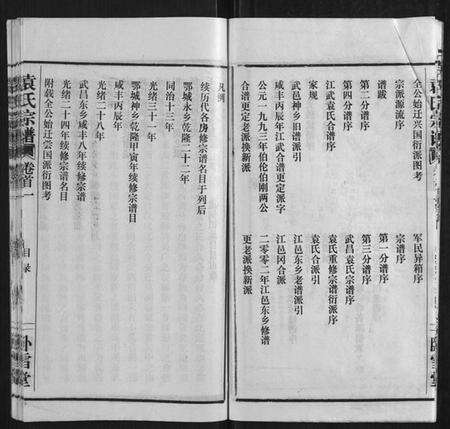 全公始迁兴国衍派图考
宗派源流序
谱跋
第二分谱序
第四分谱序
江武袁氏合谱序
家规
武邑神乡旧谱派引
咸丰丙辰年江武合谱更定派字
公元一九九三年伯伦伯刚两公
合谱更定老派换新派
军民异箱序
宗谱序
第一分谱序
第三分谱序
武昌袁氏宗谱序
袁氏重修宗谱衍派序
袁氏合派引
江邑东乡老谱派引
江邑冈合派
二零零二年江邑东乡修谱
更老派换新派
凡例
续历代各房修宗谱名目于列后
鄂城永乡乾隆二十二年
同治十三年
光绪三十一年
鄂城神乡乾隆甲寅年续修宗谱目
咸丰丙辰年
光绪二十八年
武昌东乡咸丰八年续修宗谱
光绪二十四年续修宗谱名目
附载全公始迁崇国派衍图考
袁氏宗谱
卷首一
目录
卧雪堂